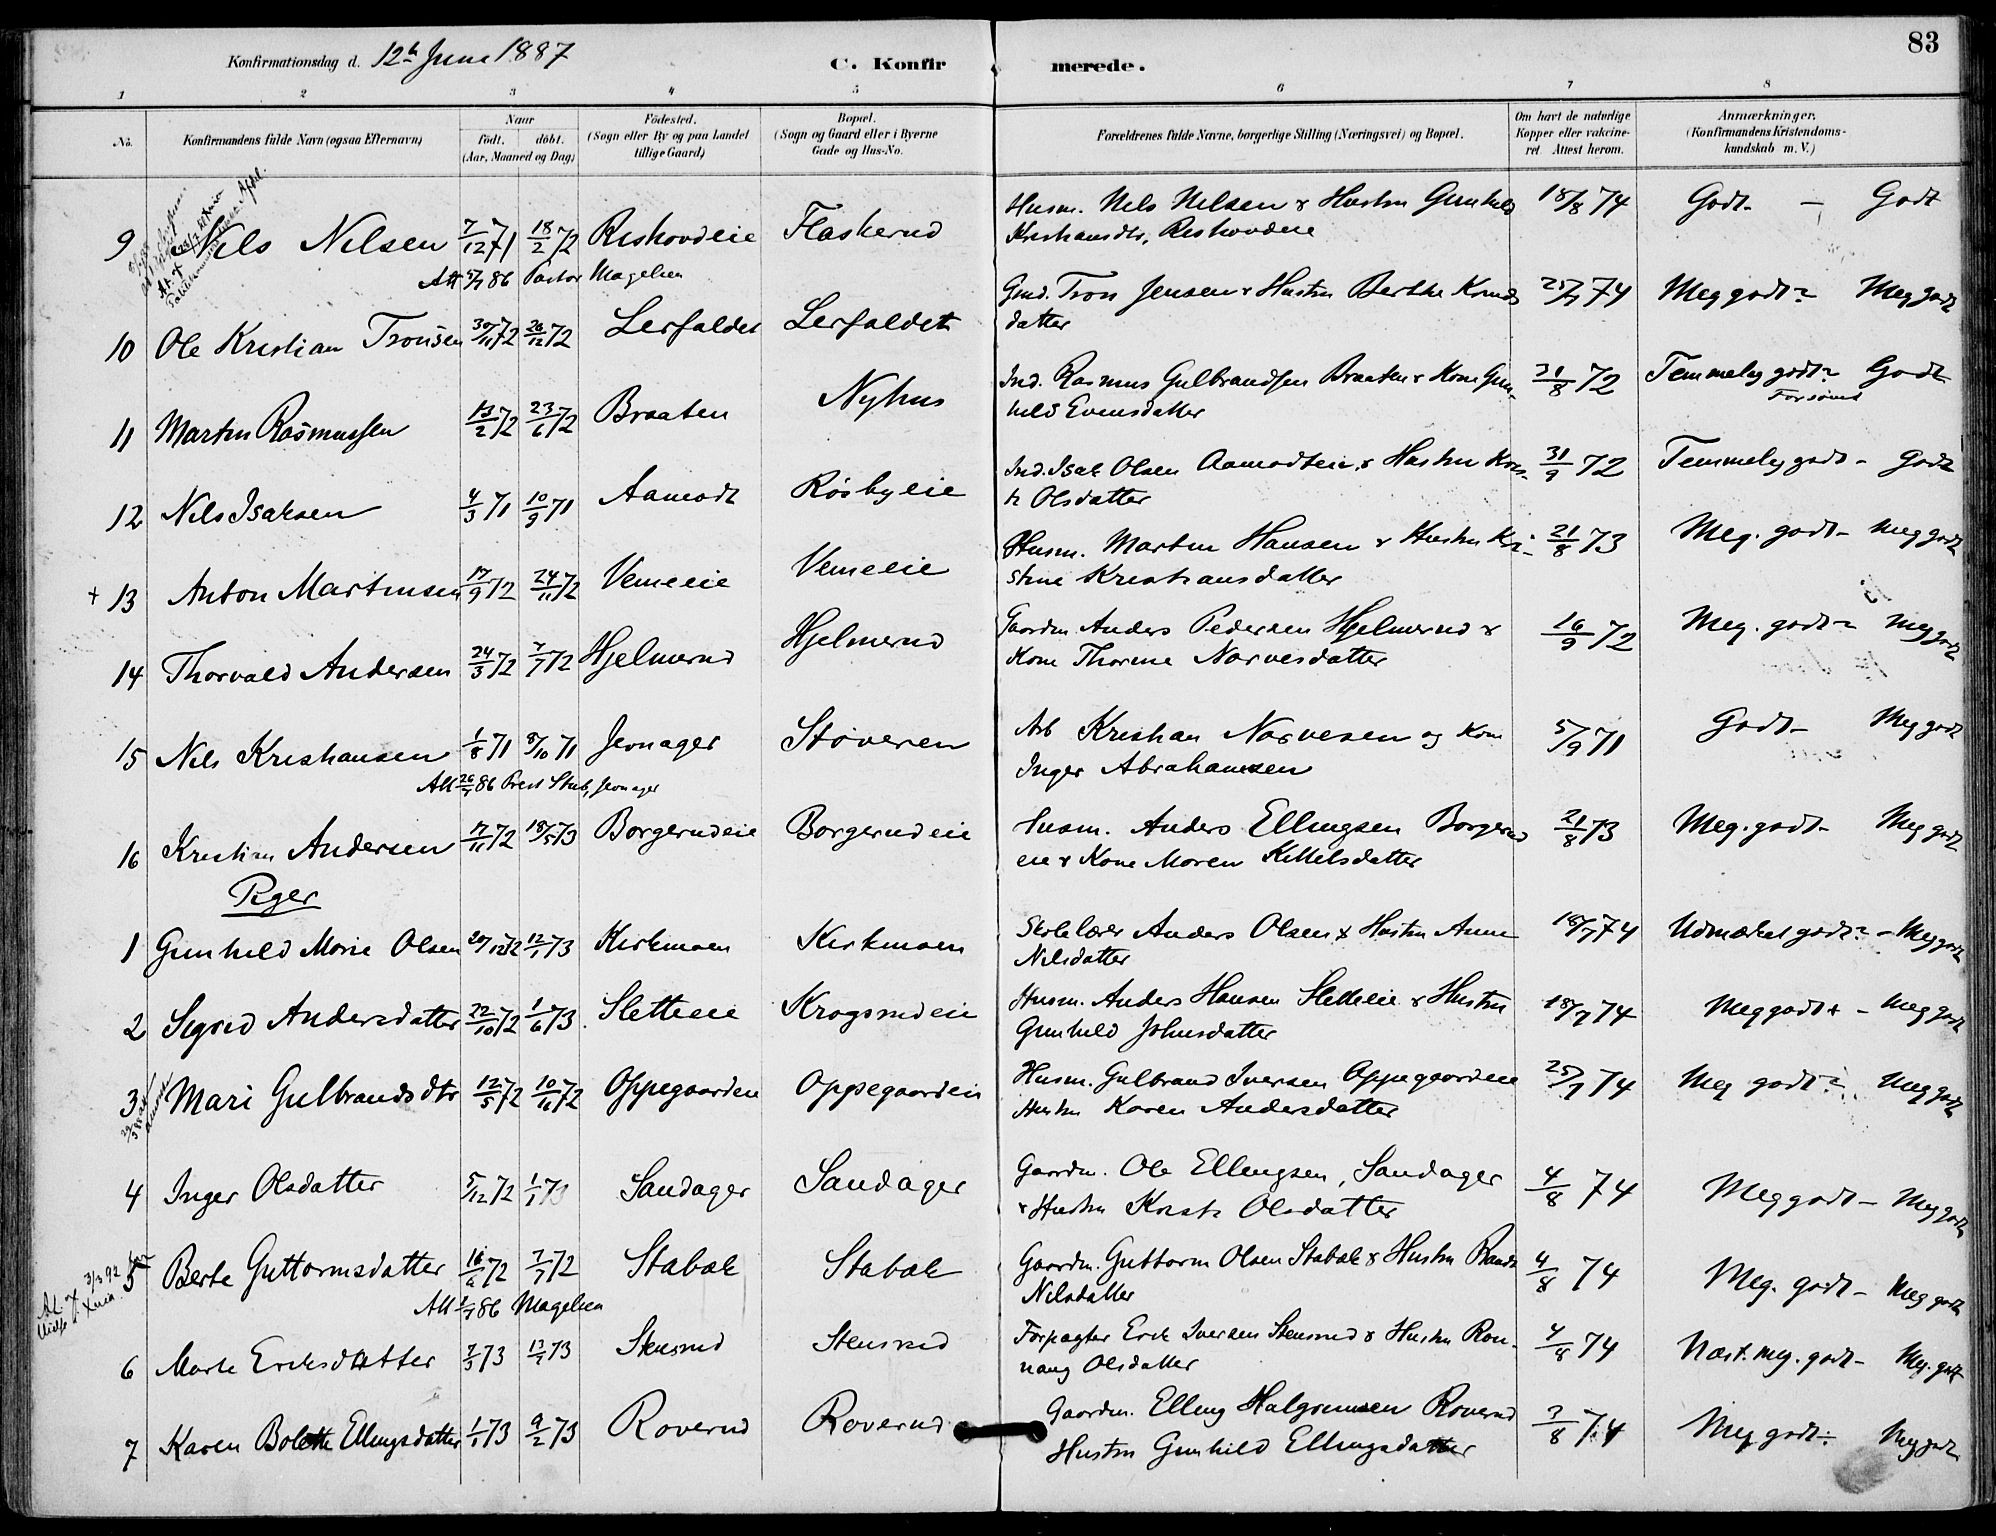 83
Konfirmationsdag d. 12te Juni 1887
C. Konfirmerede.
1 2 3 4 5 6 7 8
No. Konfirmandens fulde Navn (ogsaa Efternavn) Naar født. døbt. (Aar, Maaned og Dag) Fødested. (Sogn eller By og paa Landet tillige Gaard) Bopæl. (Sogn og Gaard eller i Byerne Gade og Hus-No. Forældrenes fulde Navne, borgerlige Stilling (Næringsvei) og Bopæl. Om havt de naturlige Kopper eller vaksineret Attest herom. Anmærkninger. (Konfirmandens Kristendomskundskab m. V.)
9 Nils Nilsen 7/12 71 18/2 72 Rishovdeie Flaskerud Husm. Nils Nilsen & Hustru Gunhild 18/8 74 Godt - Godt
Kristiansdtr, Rishovdeie
Att 5/7 86 Pastor Magelsen
10 Ole Kristian Tronsen 30/11 72 26/12 72 Lerfaldet Lerfaldet Gmd. Tron Jensen & Hustru Berthe Knuds 25/7 74 Meg godt? Meg godt
datter
11 Martin Rasmussen 13/2 72 23/6 72 Braaten Nyhus Ind. Rasmus Gulbrandsen Braaten & Kone Gun- 31/8 72 Temmelig godt? Godt
hild Evensdatter Forsømt
12 Nils Isaksen 4/3 71 10/9 71 Aamodt Røsbyeie Ind. Isak Olsen Aamodteie & Hustru 31/9 72 Temmelig godt - Godt
Olsdatter
+ 13 Anton Martinsen 17/9 72 24/11 72 Vemeeie Vemeeie Husm. Martin Hansen & Hustru Kri- 21/8 73 Meg. godt - meg godt
stine Kristiansdatter
14 Thorvald Andersen 24/3 72 7/7 72 Hjelmerud Hjelmerud Gaardm. Anders Pedersen Hjelmerud & 16/9 72 Meg. godt - meg godt
Kone Thorine Narvesdatter
15 Nils Kristiansen 1/8 71 8/10 71 Jevnager Støveren Arb Kristian Narvesen og Kone 5/9 71 Godt - Meg godt
Inger Abrahamsen
Att 26/7 86 Prest Stub, Jevnager
16 Kristian Andersen 17/11 72 18/5 73 Borgerudeie Borgerudeie Husm. Anders Ellingsen Borgerud 21/8 73 Meg. godt - Meg godt
eie & Kone Maren Kittilsdatter
Piger
1 Gunhild Marie Olsen 20/12 72 12/1 73 Kirkmoen Kirkmoen Skolelærer Anders Olsen & Hustru Anne 18/7 74 Udmærket godt? - Meg godt
Nilsdatter
2 Sigrid Andersdatter 22/10 72 1/6 73 Sletteeie Krogsrudeie Husm. Anders Hansen Sletteeie & Hustru 18/7 74 Meg godt + - meg godt
Gunhild Johnsdatter
3 Mari Gulbrandsdtr 12/5 72 10/11 72 Oppegaardeie Oppegaardeie Husm. Gulbrand Iversen Oppegaardeie 25/7 74 Meg godt? Meg godt
Hustru Karen Andersdatter
4 Inger Olsdatter 5/12 72 1/1 73 Sandager Sandager Gaardm. Ole Ellingsen, Sandager 4/8 74 Meg godt - Meg godt
& Hustru Olsdatter
5 Berte Guttormsdatter 16/6 72 7/7 72 Stabæk Stabæk Gaardm. Guttorm Olsen Stabæk & Hustru Randi 4/8 74 Meg. godt - Meg godt
Nilsdatter
Att 1/7 86 Magelsen
6 Marte Eriksdatter 2/3 73 13/7 73 Stensrud Stensrud Forpagter Erik Iversen Stensrud & Hustru Ron- 4/8 74 Næst. meg. godt - Meg. godt
naug Olsdatter
7 Karen Bolette Ellingsdatter 1/1 73 9/2 73 Roverud Roverud Gaardm. Elling Halgrimsen Roverud 3/8 74 Meg godt Meg godt
Hustru Gunhild Ellingsdatter